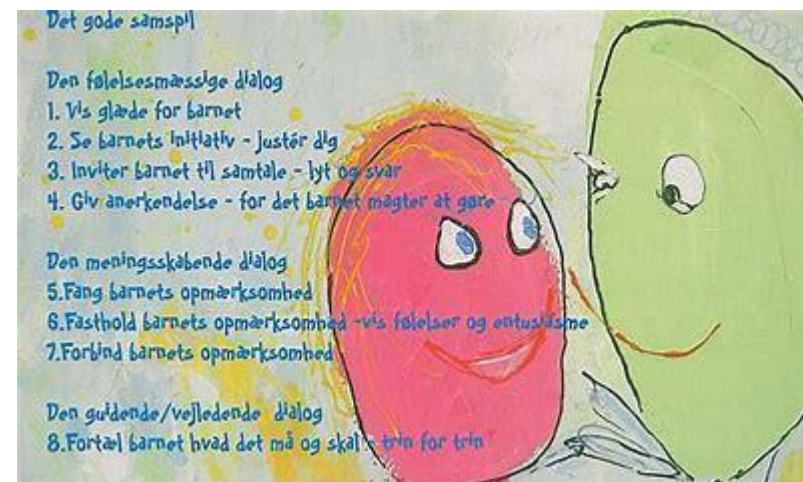 Det gode samspil
Den følelsesmæssige dialog
1. Vis glæde for barnet
2. Se barnets initiativ - justér dig
3. Inviter barnet til samtale - lyt og svar
4. Giv anerkendelse - for det barnet magter at gøre
Den meningsskabende dialog
5.Fang barnets opmærksomhed
6.Fasthold barnets opmærksomhed -vis følelser og entusiasme
7.Forbind barnets opmærksomhed
Den guidende/vejledende dialog
8.Fortæl barnet hvad det må og skal - trin for trin